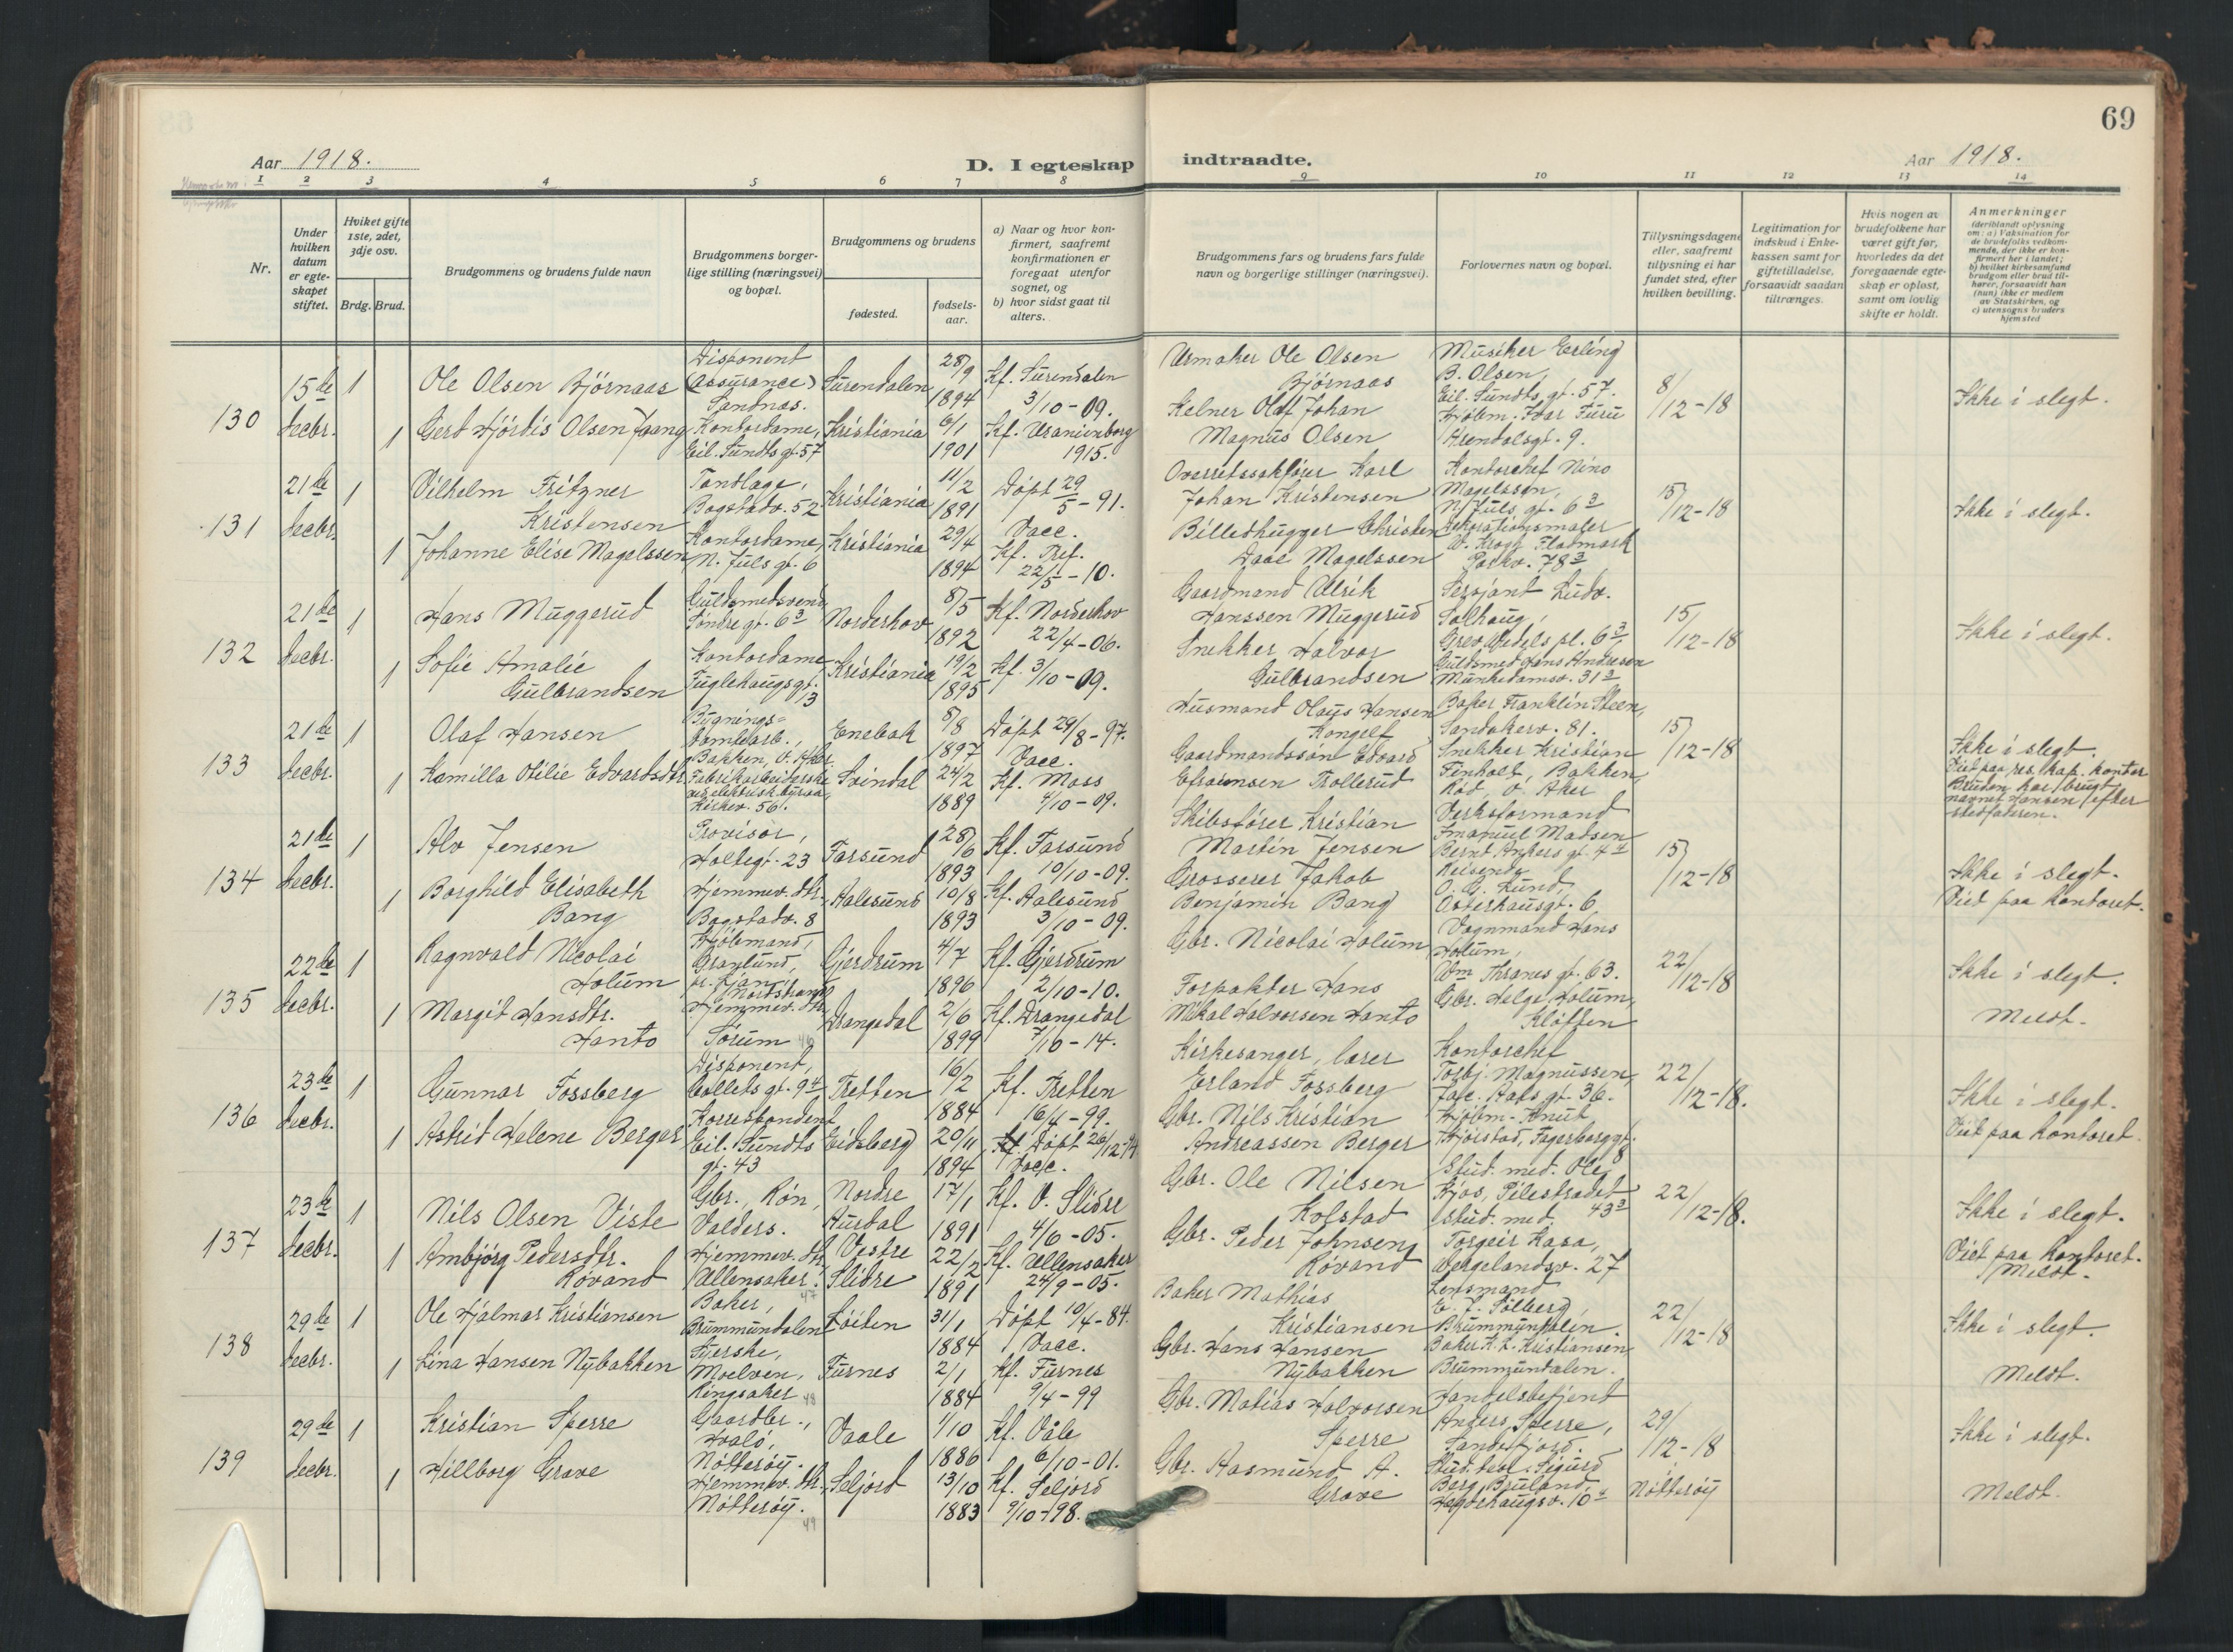 69
Aar 1918.
D. I egteskap
indtraadte.
Aar 1918.
1 2 3 4 5 6 7 8 9 10 11 12 13 14
Nr.
Under hvilken datum er egte-skapet stiftet.
Hviket gifte 1ste, 2det, 3dje osv.
Brdg. Brud.
Brudgommens og brudens fulde navn
Brudgommens borger-lige stilling (næringsvei) og bopæl.
Brudgommens og brudens
fødested.
fødsels-aar.
a) Naar og hvor kon-firmert, saafremt konfirmationen er foregaat utenfor sognet, og
b) hvor sidst gaat til alters.
Brudgommens fars og brudens fars fulde navn og borgerlige stillinger (næringsvei).
Forlovernes navn og bopæl.
Tillysningsdagene eller, saafremt tillysning ei har fundet sted, efter hvilken bevilling.
Legitimation for indskud i Enke-kassen samt for giftetilladelse, forsaavidt saadan tiltrænges.
Hvis nogen av brudefolkene har været gift før, hvorledes da det foregaaende egte-skap er opløst, samt om lovlig skifte er holdt.
Anmerkninger (deriblandt oplysning om: a) Vaksination for de brudefolks vedkom-mende, der ikke er kon-firmert her i landet; b) hvilket kirkesamfund brudgom eller brud til-hører, forsaavidt han (hun) ikke er medlem av Statskirken, og c) utensogns bruders hjemsted
130
15de Decbr.
1
Ole Olsen Bjørnaas
Disponent (assurance) Sandnæs.
Surendalen
28/9 1894
Kf. Surendalen 3/10-09.
Urmaker Ole Olsen Bjørnaas
Musiker Erling B. Olsen, Eil. Sundts gt. 57.
8/12-18
Ikke i slegt.
1
Gerd Hjördis Olsen
Kontordame, Eil. Sundts gt. 57
Kristiania
6/1 1901
Kf. Uranienborg 1915.
Kelner Olaf Johan Magnus Olsen
Kjøbm. Ivar Furu Arendalsgt. 9.
131
21de Decbr.
1
Vilhelm Fritzner Kristensen
Tandlæge, Bogstadv. 52
Kristiania
11/2 1891
Døpt 29/5-91. Vacc.
Overretssakfører Karl Johan Kristensen
Kontorchef Nino Magelssen, N. Juls gt. 6 3
15/12-18
Ikke i slegt.
1
Johanne Elise Magelssen
Kontordame, N. Juls gt. 6
Kristiania
29/4 1894
Kf. Tref. 22/5-10.
Billedhugger Christen Daae Magelssen
Dekorationsmaler V. Krogh Flodmark Parkv. 78 3
132
21de Decbr.
1
Hans Muggerud
Guldsmedsvend, Søndre gt. 6 3
Norderhov
8/5 1892
Kf. Norderhov 22/4-06.
Gaardmand Ulrik Hanssen Muggerud
Sersjant Ludv. Solhaug, Grev Wedels pl. 6 3
15/12-18
Ikke i slegt.
1
Sofie Amalie Gulbrandsen
Kontordame Fuglehaugsgt. 13
Kristiania
19/2 1895
Kf. 3/10-09.
Snekker Halvor Gulbrandsen
Guldsmed Hans Andresen Munkedamsv. 31 3
133
21de Decbr.
1
Olaf Hansen
Bygnings- Bakken, Ø. Aker.
Enebak
8/8 1897
Døpt 29/8-97. Vacc.
Husmand Olaus Hansen
Baker Franklin Steen, Sandakerv. 81.
15/12-18
Ikke i slegt.
Viet paa res. kap. kontor
Bruden har brugt navnet Hansen efter stedfaderen.
1
Kamilla Otilie Edvardsdtr.
Fabrikarbeiderske ved elektrisk byraa, Kirkev. 56.
Svindal
24/2 1889
Kf. Moss 4/10-09.
Gaardmandssøn Edvard Efraimsen Trollerud
Snekker Kristian Finholt, Bakken, Ø. Aker
134
21de Decbr.
1
Alv Jensen
Provisor, Holtegt. 23
Farsund
28/6 1893
Kf. Farsund 10/10-09.
Skibsfører Kristian Martin Jensen
Verksformand Emanuel Madsen Bernt Ankers gt. 4 4
15/12-18
Ikke i slegt.
Viet paa kontoret.
1
Borghild Elisabeth Bang
Hjemmev. dtr. Bogstadv. 8
Aalesund
10/8 1893
Kf. Aalesund 3/10-09.
Grosserer Jakob Benjamin Bang
Reisende O. G. Lund, Osterhausgt. 6
135
22de Decbr.
1
Ragnvald Nicolai Holum
Kjøbmand, Granlund, pr. Ljan, Nordstrand
Gjerdrum
4/7 1896
Kf. Gjerdrum 2/10-10.
Gbr. Nicolai Holum
Vognmand Hans Holum, Wm Thranes gt. 63.
22/12-18
Ikke i slegt.
Meldt.
1
Margit Hansdtr. Hanto
Hjemmev. dtr. Sørum
Drangedal
2/6 1899
Kf. Drangedal 7/10-14.
Forpakter Hans Mikal Halvorsen Hanto
Gbr. Helge Holum, Kløften
136
23de Decbr.
1
Gunnar Fossberg
Disponent, Colletts gt. 9 4
Tretten
16/2 1884
Kf. Tretten 16/4-99.
Kirkesanger, lærer Erland Fossberg
Kontorchef Torbj. Magnussen, Jac. Aals gt. 36.
22/12-18.
Ikke i slegt.
Viet paa kontoret.
1
Astrid Helene Berger
Korrespondent Eil. Sundts gt. 43
Eidsberg
20/11 1894
Døpt 26/12-94 Vacc.
Gbr. Nils Kristian Andreassen Berger
Kjøbm. Knut Kjølstad, Fagerborggt. 8
137
23de Decbr.
1
Nils Olsen Viste
Gbr., Røn, Valders.
Nordre Aurdal
17/1 1891
Kf. V. Slidre 4/6-05.
Gbr. Ole Nilsen Kolstad
Stud. med. Ole Kjos, Pilestrædet 43 3
22/12-18.
Ikke i slegt.
Viet paa kontoret.
Meldt.
1
Ambjørg Pedersdtr. Røvand
Hjemmev. dtr. Ullensaker. 47
Vestre Slidre
22/2 1891
Kf. Ullensaker 24/9-05.
Gbr. Peder Johnseng Røvand
stud. med. Torgeir Kasa, Vergelandsv. 27
138
29de Decbr.
1
Ole Hjalmar Kristiansen
Baker, Brummundalen
Løiten
31/1 1884
Døpt 10/4-84. Vacc.
Baker Mathias Kristiansen
Lensmand E. F. Solberg, Brummundalen.
22/12-18
Ikke i slegt.
Meldt.
1
Lina Hansen Nybakken
Syerske, Moelven, Ringsaker 48
Furnes
2/1 1884
Kf. Furnes 9/4-99
Gbr. Hans Hansen Nybakken
Baker K. L. Kristiansen, Brummundalen.
139
29de Decbr.
1
Kristian Sperre
Gaardbr., Hvalö, Nötteröy.
Vaale
1/10 1886
Kf. Våle 6/10-01.
Gbr. Matias Halvorsen Sperre
Handelsbetjent Anders Sperre, Sandefjord.
29/12-18
Nötteröy
Ikke i slegt.
Meldt.
1
Hillborg Grave
Hjemmev. dtr., Nötteröy. 49
Seljord
13/10 1883
Kf. Seljord 9/10-98.
Gbr. Aasmund A. Grave
Stud. teol. Sigurd Berg Bruland, Hegdehaugsv. 10